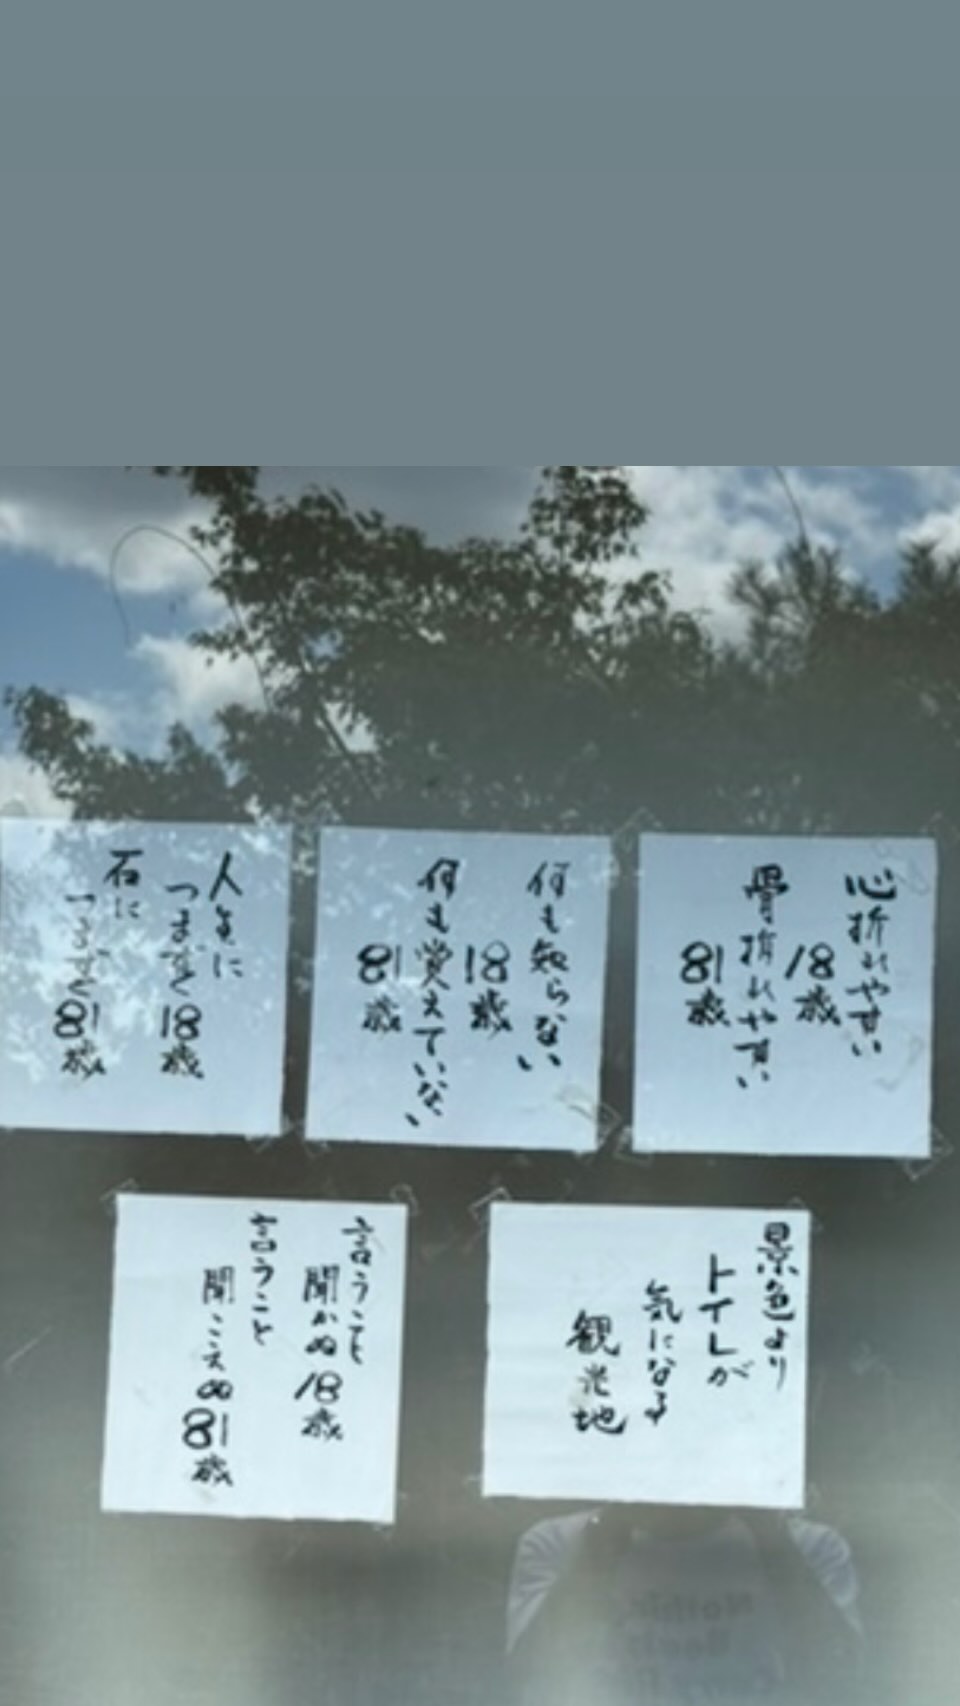 心折れやすい
18歳
骨折れやすい
81歳
何も知らない
18歳
何も覚えていない
81歳
人生に
つまずく18歳
石に
つまずく81歳
景色より
トイレが
気になる
観光地
言うこと
聞かぬ18歳
言うこと
聞こえぬ81歳